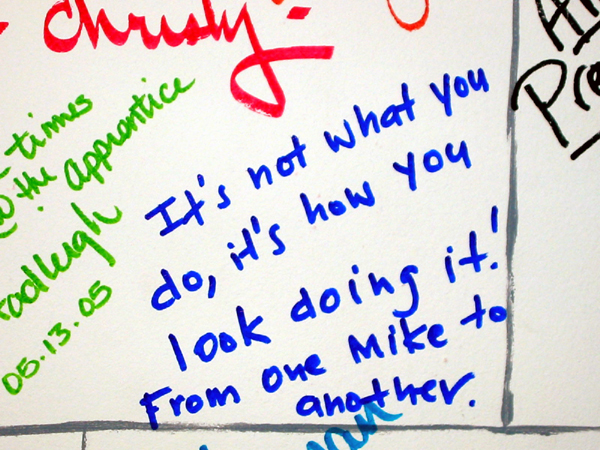 Christy!
times
@ the apprentice
05.13.05
It's not what you
do, it's how you
look doing it!
From one Mike to
another.